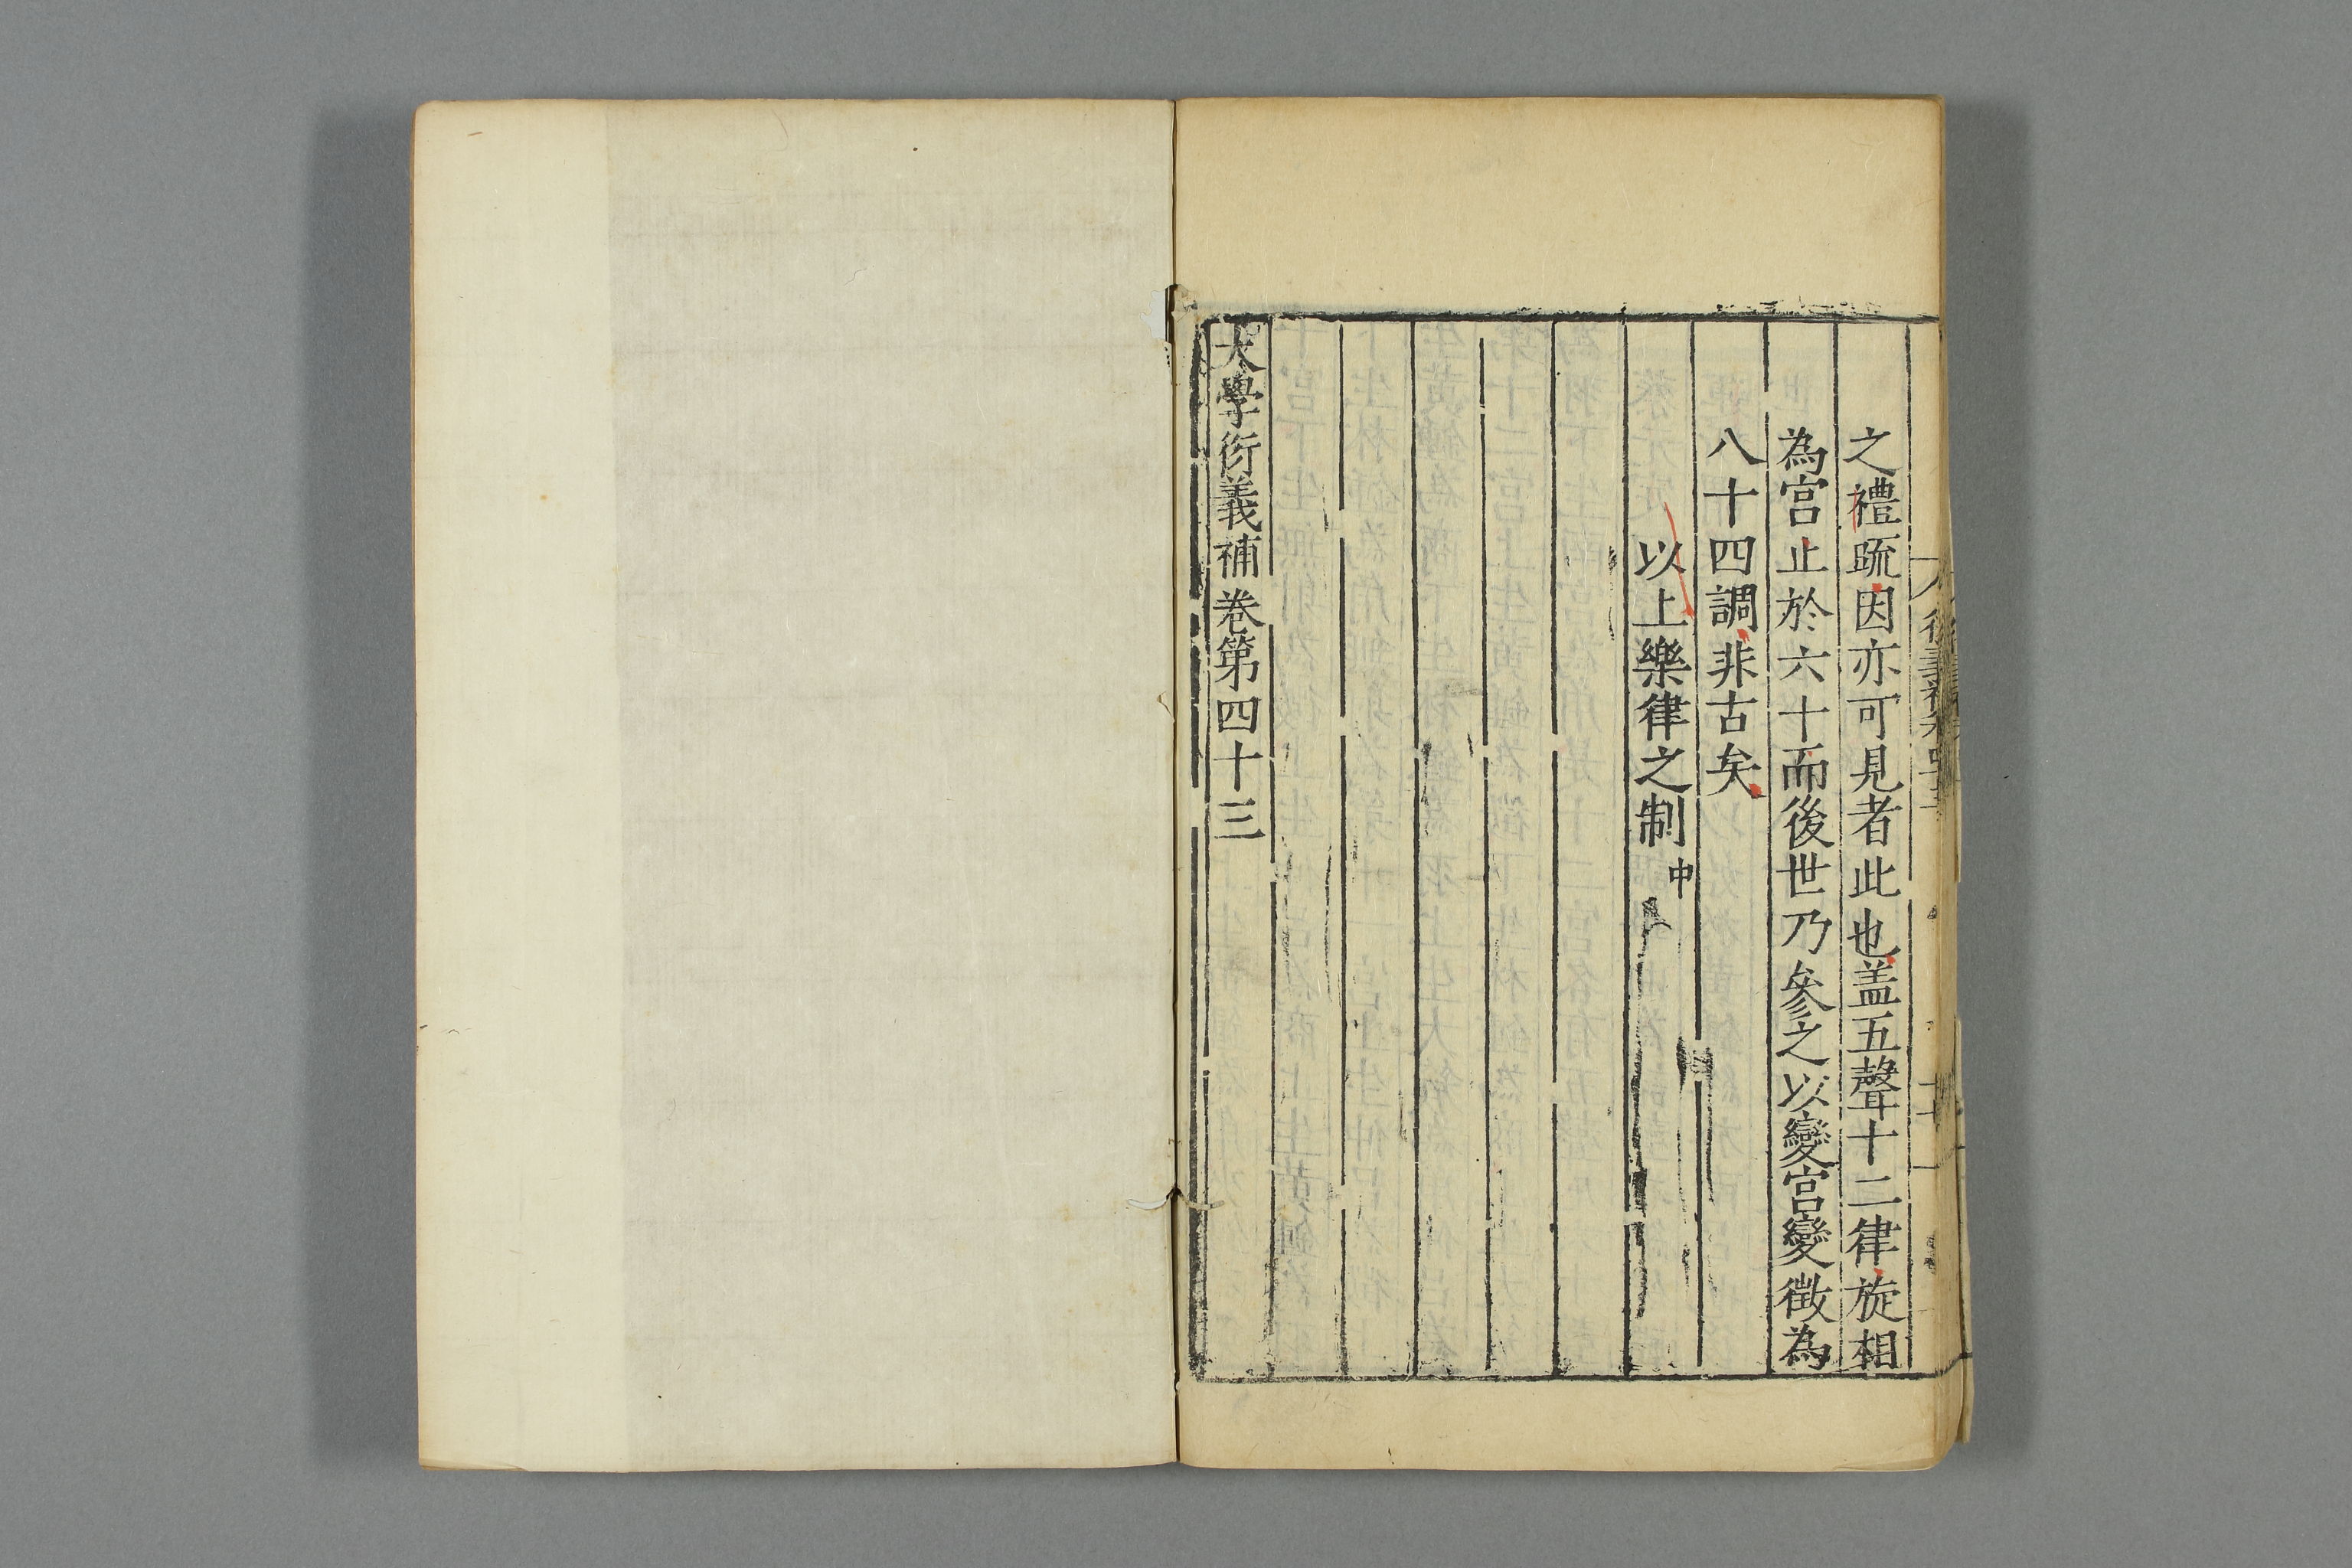 之禮疏因亦可見者此也盖五聲十二律旋相
為宫止於六十而後世乃參之以變宫變徵為
八十四調非古矣
以上樂律之制中
大學衍義補卷第四十三